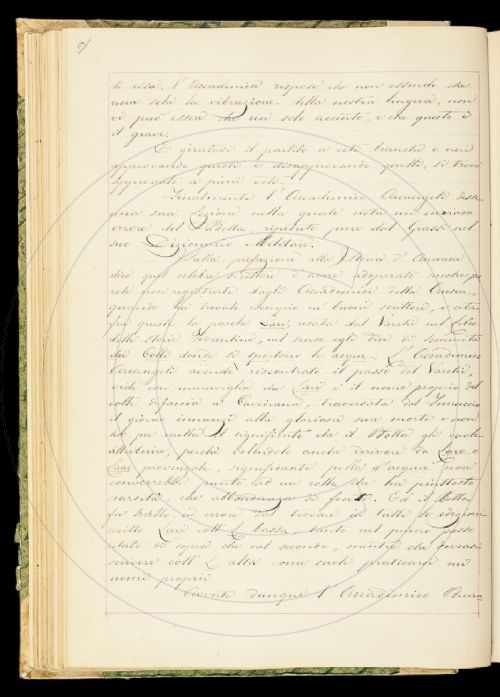 di essa. L'Accademia rispose che non essendo che
una sola la vibrazione della nostra lingua, non
vi può essere che un solo accento, e che questo è
il grave.
E giratosi il partito a voti bianchi e neri
approvando questi e disapprovando quelli, si trovò
approvato a pieni voti.
Finalmente l'Accademico Arcangeli lesse
una sua Lezione nella quale nota un curioso
errore del Botta, ripetuto pure dal Grassi nel
suo Dizionario Militare.
Nella prefazione alla Storia d'America
dice quel celebre scrittore d'avere adoperato anche pa
role non registrate dagli Accademici della Crusca,
quando ha trovato esempio ne' buoni scrittori, e cita
fra queste la parola Lari, usata dal Varchi nel libro
delle Storie Fiorentine, nel senso egli dice di sommità
dei Colli donde si spartono le acque. L'Accademico
Arcangeli avendo riscontrato il passo del Varchi,
vide con maraviglia che Lari è il nome proprio del
colle di faccia a Gavinana, traversata dal Ferruccio
il giorno innanzi alla gloriosa sua morte e non
ha per nulla il significato che il Botta gli vuole
attribuire, perchè volendolo anche derivare da
provenzale, significante polla d'acqua, non
converrebbe punto ad un colle che ha piuttosto
scarsità, che abbondanza di fonti. Così il Botta
fu tratto in errore dal trovare in tutte le edizioni
scritto Lari coll' L bassa, tanto nel primo passo
citato di sopra che nel secondo, mentre che dovevasi
scrivere coll' L alta come suole praticarsi nei
nomi propri.
Avendo dunque l'Accademico